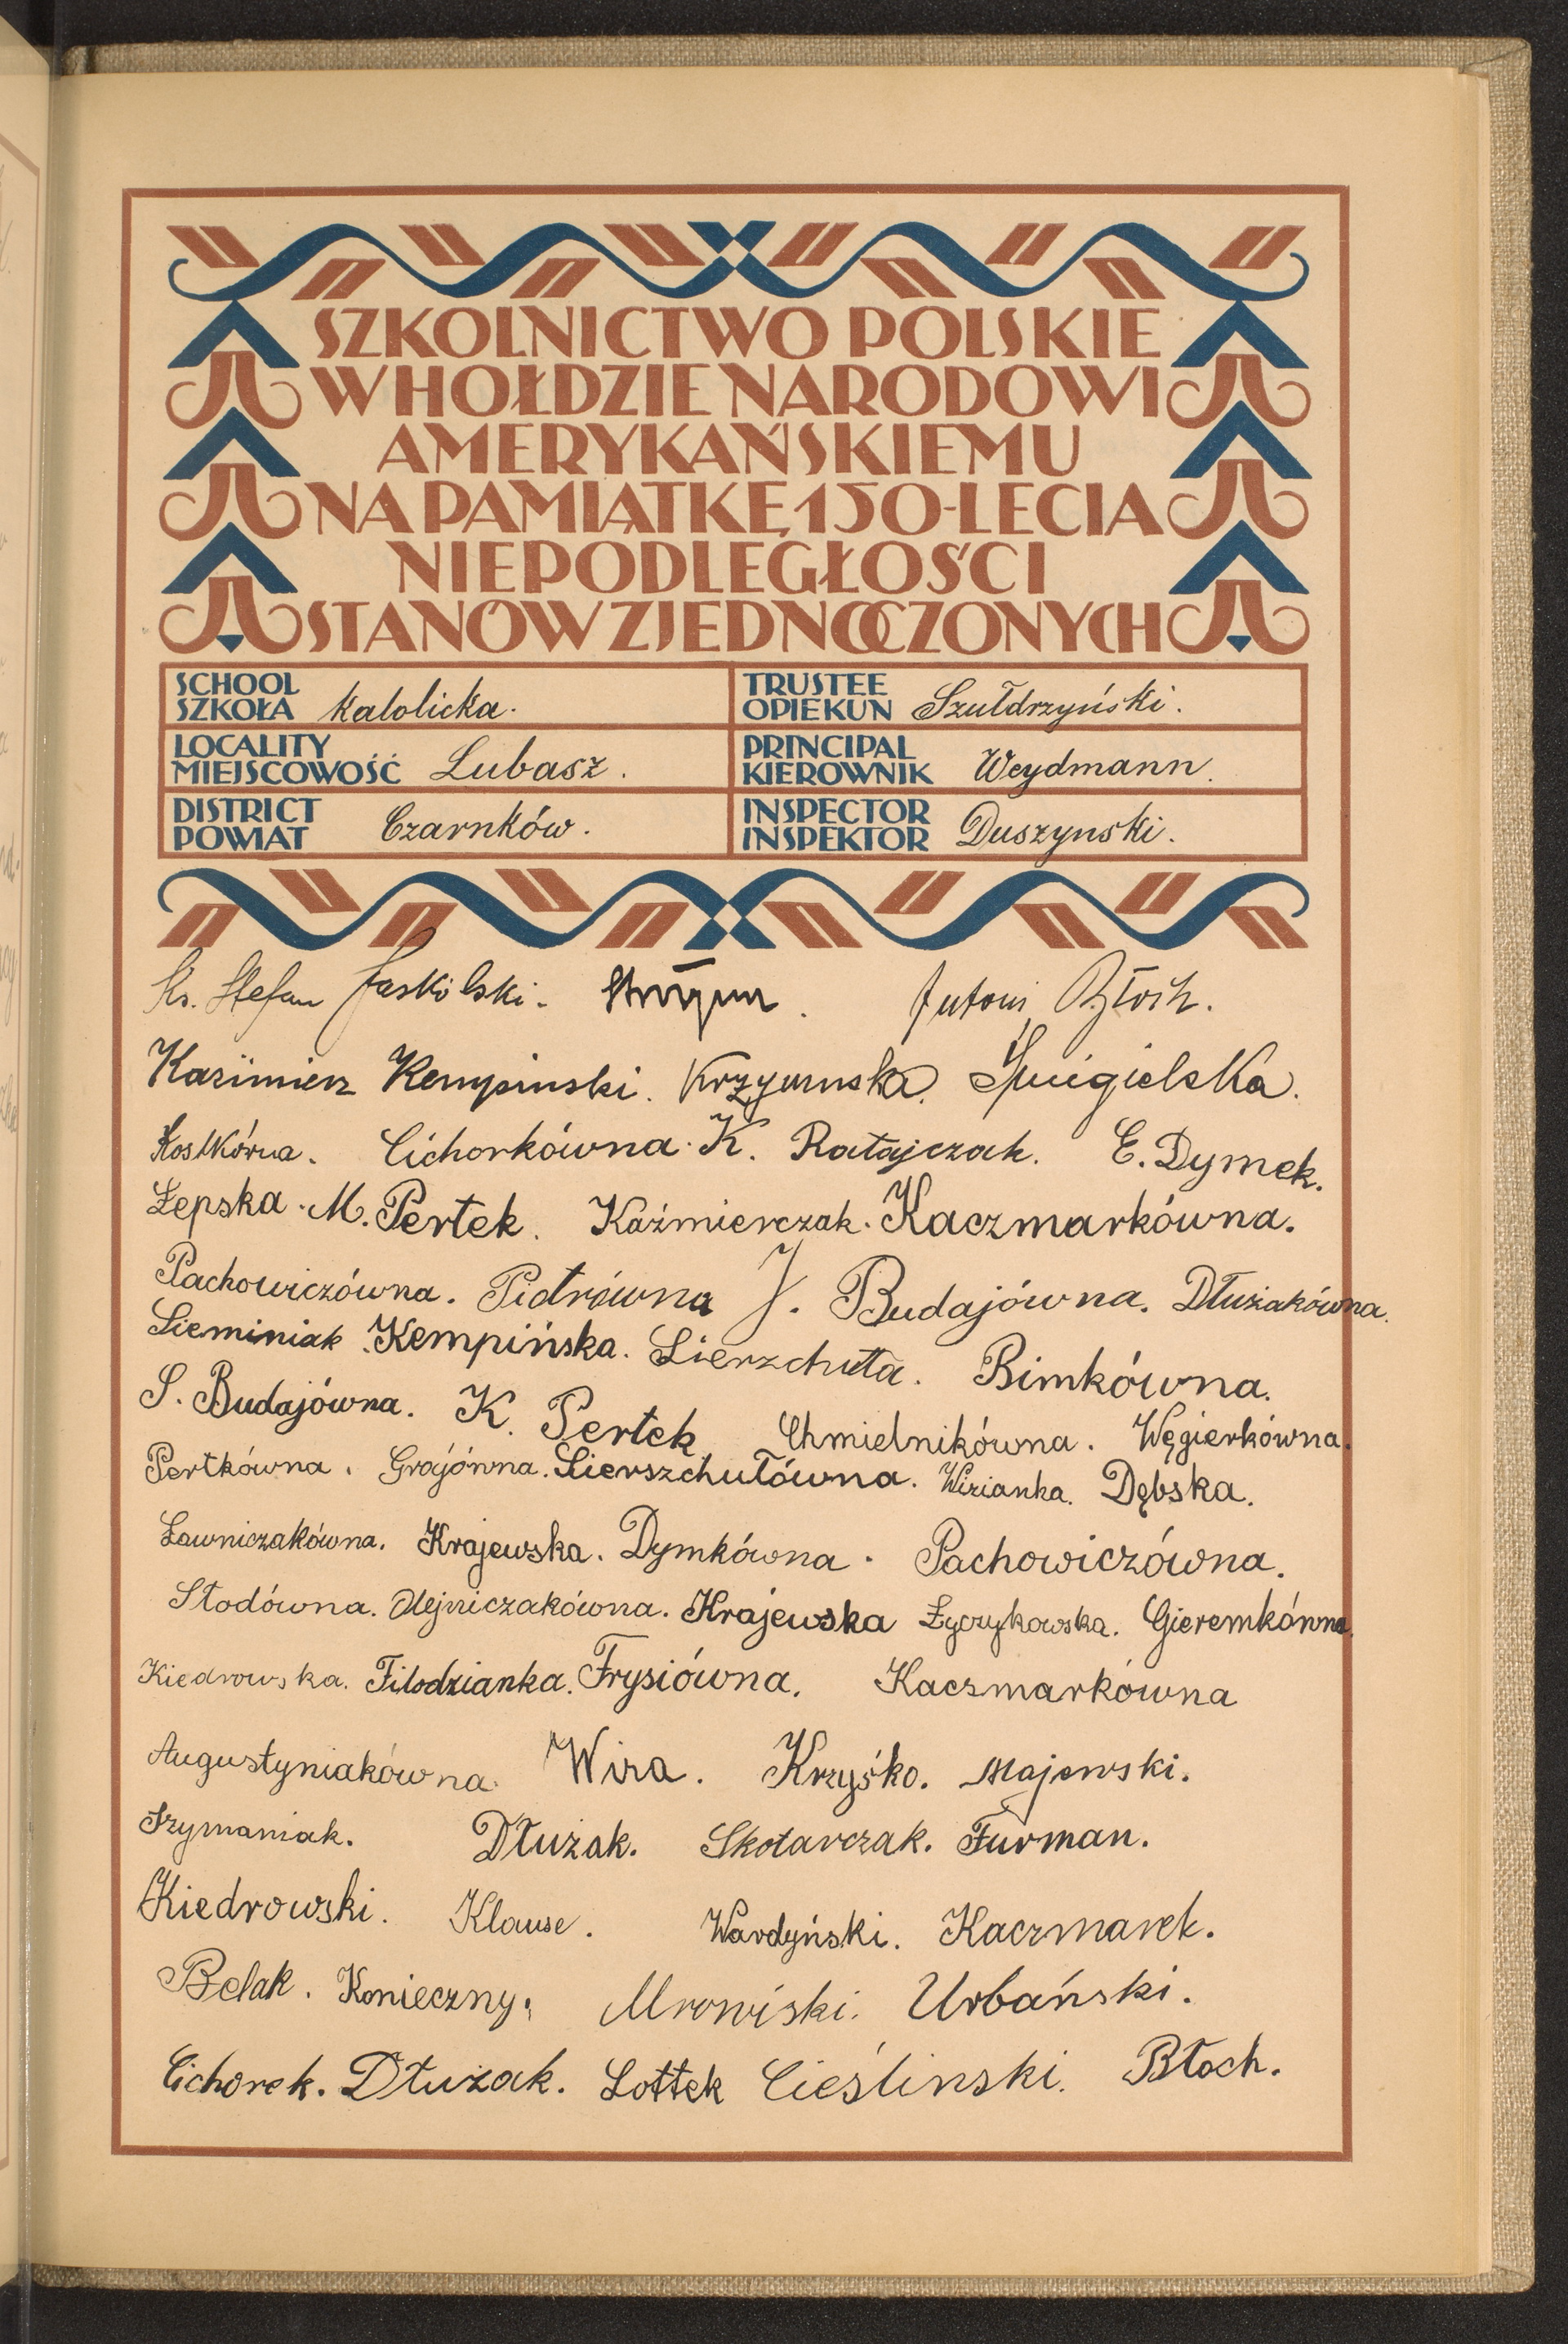 SZKOLNICTWO POLSKIE
W HOŁDZIE NARODOWI
AMERYKAŃSKIEMU
NA PAMIĄTKĘ 150-LECIA
NIEPODLEGŁOŚCI
STANÓW ZJEDNOCZONYCH
SCHOOL
SZKOŁA Katolicka.
TRUSTEE
OPIEKUN Szułdrzyński.
LOCALITY
MIEJSCOWOŚĆ Lubasz.
PRINCIPAL
KIEROWNIK Weydmann.
DISTRICT
POWIAT Czarnków.
INSPECTOR
INSPEKTOR Duszynski.
Ks. Stefan Jaskólski. Antoni Błoch.
Kazimierz Kempinski. Krzymuska. Śmigielska.
Kostkówna. Cichorkówna. K. Ratajczak. E. Dymek.
Łepska. M. Pertek. Kaźmierczak. Kaczmarkówna.
Pachowiczówna. Piotrówna J. Budajówna. Dłużakówna.
Sieminiak. Kempińska. Sierzchuła. Bimkówna.
S. Budajówna. K. Pertek. Chmielnikówna. Węgierkówna.
Pertkówna. Grajówna. Sierszchułówna. Wizianka. Dębska.
Ławniczakówna. Krajewska. Dymkówna. Pachowiczówna.
Stodówna. Olejniczakówna. Krajewska Życzykowska. Gieremkówna.
Kiedrowska. Filodzianka. Frysiówna. Kaczmarkówna
Augustyniakówna. Wiza. Krzyśko. Majewski.
Szymaniak. Dłużak. Skotarczak. Furman.
Kiedrowski. Klause. Wardyński. Kaczmarek.
Belak. Konieczny. Mrowiski. Urbański.
Cichorek. Dłużak. Lottek Cieślinski. Błoch.